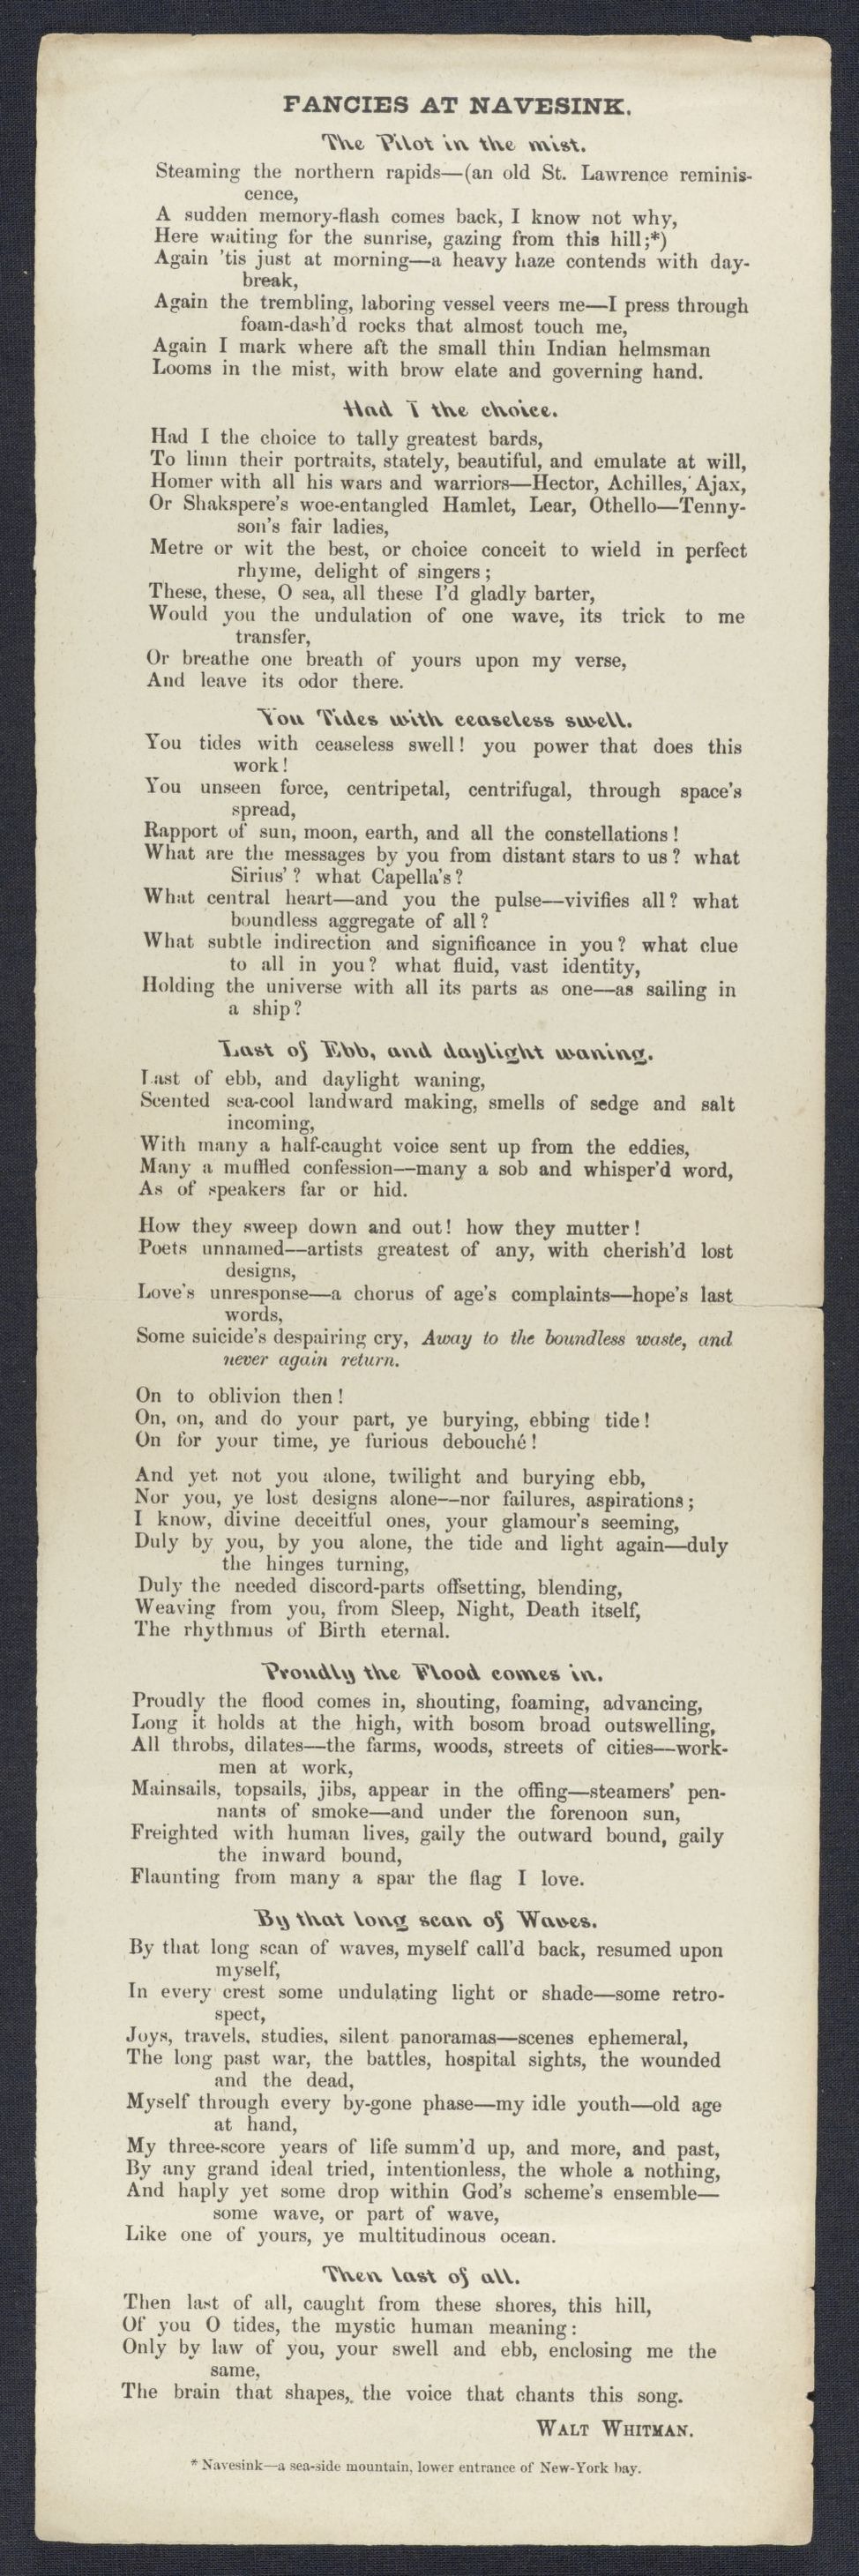 FANCIES AT NAVESINK.
The Pilot in the mist.
Steaming the northern rapids—(an old St. Lawrence reminis-
cence,
A sudden memory-flash comes back, I know not why,
Here waiting for the sunrise, gazing from this hill;*)
Again 'tis just at morning—a heavy haze contends with day-
break,
Again the trembling, laboring vessel veers me—I press through
foam-dash'd rocks that almost touch me,
Again I mark where aft the small thin Indian helmsman
Looms in the mist, with brow elate and governing hand.
Had I the choice.
Had I the choice to tally greatest bards,
To limn their portraits, stately, beautiful, and emulate at will,
Homer with all his wars and warriors—Hector, Achilles, Ajax,
Or Shakspere's woe-entangled Hamlet, Lear, Othello—Tenny-
son's fair ladies,
Metre or wit the best, or choice conceit to wield in perfect
rhyme, delight of singers;
These, these, O sea, all these I'd gladly barter,
Would you the undulation of one wave, its trick to me
transfer,
Or breathe one breath of yours upon my verse,
And leave its odor there.
You Tides with ceaseless swell.
You tides with ceaseless swell! you power that does this
work!
You unseen force, centripetal, centrifugal, through space's
spread,
Rapport of sun, moon, earth, and all the constellations!
What are the messages by you from distant stars to us? what
Sirius'? what Capella's?
What central heart—and you the pulse—vivifies all? what
boundless aggregate of all?
What subtle indirection and significance in you? what clue
to all in you? what fluid, vast identity,
Holding the universe with all its parts as one—as sailing in
a ship?
Last of Ebb, and daylight waning.
Last of ebb, and daylight waning,
Scented sea-cool landward making, smells of sedge and salt
incoming,
With many a half-caught voice sent up from the eddies,
Many a muffled confession—many a sob and whisper'd word,
As of speakers far or hid.
How they sweep down and out! how they mutter!
Poets unnamed—artists greatest of any, with cherish'd lost
designs,
Love's unresponse—a chorus of age's complaints—hope's last
words,
Some suicide's despairing cry, Away to the boundless waste, and
never again return.
On to oblivion then!
On, on, and do your part, ye burying, ebbing tide!
On for your time, ye furious debouché!
And yet not you alone, twilight and burying ebb,
Nor you, ye lost designs alone—nor failures, aspirations;
I know, divine deceitful ones, your glamour's seeming,
Duly by you, by you alone, the tide and light again—duly
the hinges turning,
Duly the needed discord-parts offsetting, blending,
Weaving from you, from Sleep, Night, Death itself,
The rhythmus of Birth eternal.
Proudly the Flood comes in.
Proudly the flood comes in, shouting, foaming, advancing,
Long it holds at the high, with bosom broad outswelling,
All throbs, dilates—the farms, woods, streets of cities—work-
men at work,
Mainsails, topsails, jibs, appear in the offing—steamers' pen-
nants of smoke—and under the forenoon sun,
Freighted with human lives, gaily the outward bound, gaily
the inward bound,
Flaunting from many a spar the flag I love.
By that long scan of Waves.
By that long scan of waves, myself call'd back, resumed upon
myself,
In every crest some undulating light or shade—some retro-
spect,
Joys, travels, studies, silent panoramas—scenes ephemeral,
The long past war, the battles, hospital sights, the wounded
and the dead,
Myself through every by-gone phase—my idle youth—old age
at hand,
My three-score years of life summ'd up, and more, and past,
By any grand ideal tried, intentionless, the whole a nothing,
And haply yet some drop within God's scheme's ensemble—
some wave, or part of wave,
Like one of yours, ye multitudinous ocean.
Then last of all.
Then last of all, caught from these shores, this hill,
Of you O tides, the mystic human meaning:
Only by law of you, your swell and ebb, enclosing me the
same,
The brain that shapes, the voice that chants this song.
WALT WHITMAN.
* Navesink—a sea-side mountain, lower entrance of New-York bay.